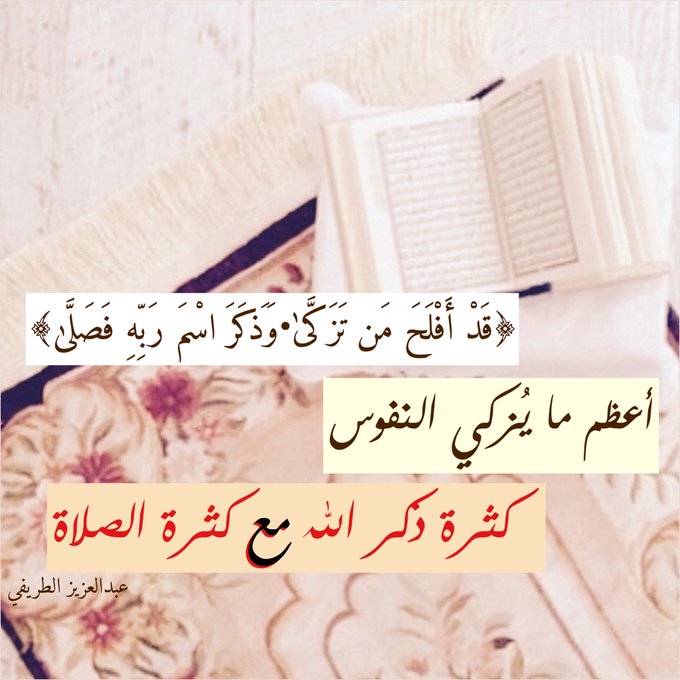 ﴿قَدْ أَفْلَحَ مَن تَزَكَّىٰ•وَذَكَرَ اسْمَ رَبِّهِ فَصَلَّىٰ﴾
أعظم ما يُزكي النفوس
كثرة ذكر الله مع كثرة الصلاة
عبدالعزيز الطريفي